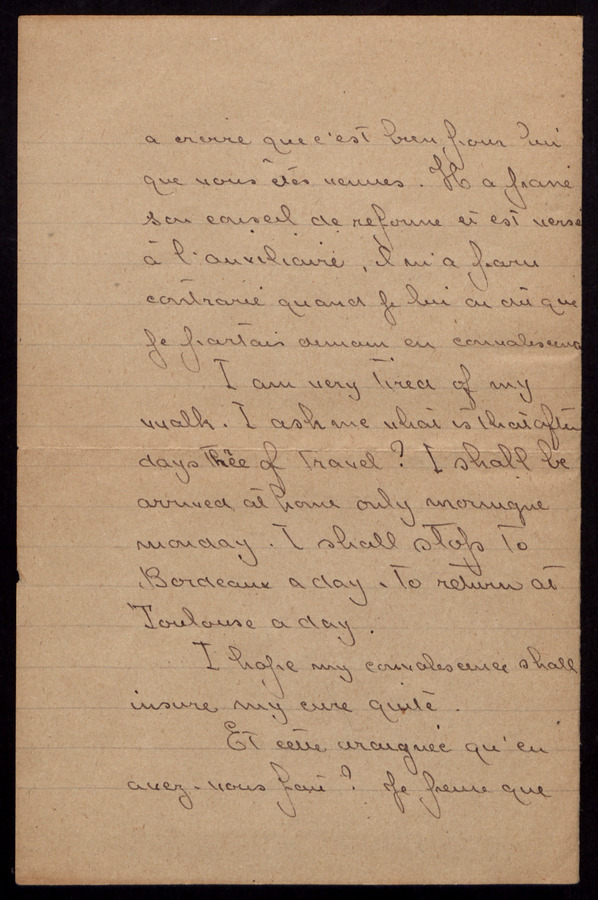 a croire que c'est bien pour lui
que vous êtes venues. Il a passé
son conseil de reforme et est versé
à l'auxiliaire, il m'a paru
contrarié quand je lui ai dit que
je partais demain en convalescence
I am very tired of my
walk. I ask me what is that after
days thêe of travel? I shall be
arrived at home only morningue
monday. I shall stop to
Bordeaux a day. To return at
Toulouse a day.
I hope my convalescence shall
insure my cure quite.
Et cette araignée qu'en
avez-vous fait? Je pense que